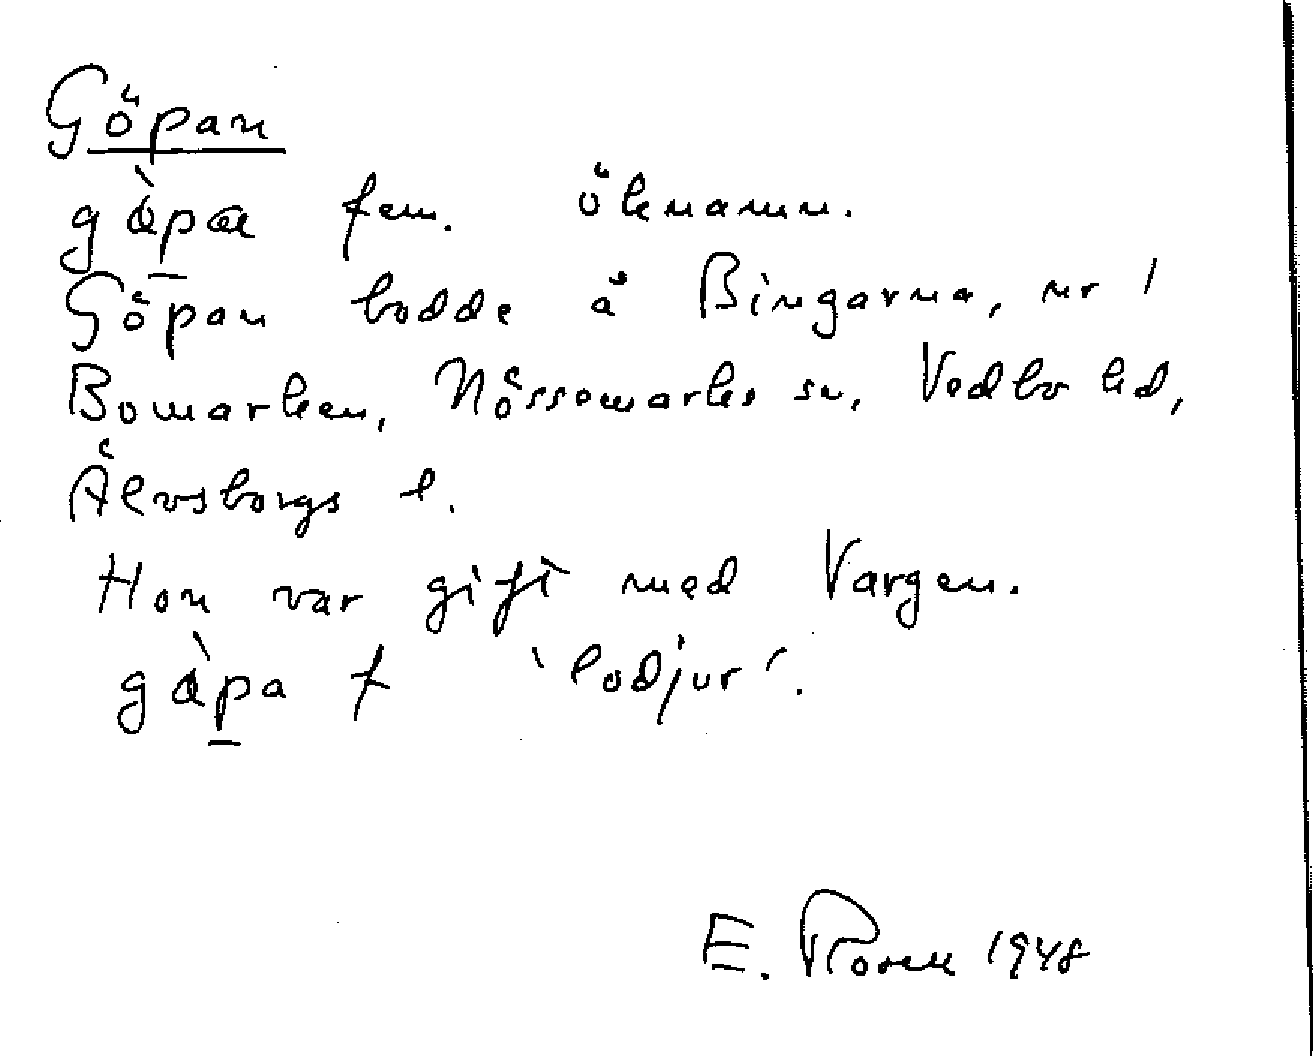 Göpan
gàpæ fem. öknamn.
Göpan bodde å Bingarna, nr 1
Bomarken, Nössemarks sn, Vedbo hd,
Älvsborgs l.
Hon var gift med Vargen.
gàpa f 'lodjur'.
E. Rosell 1948